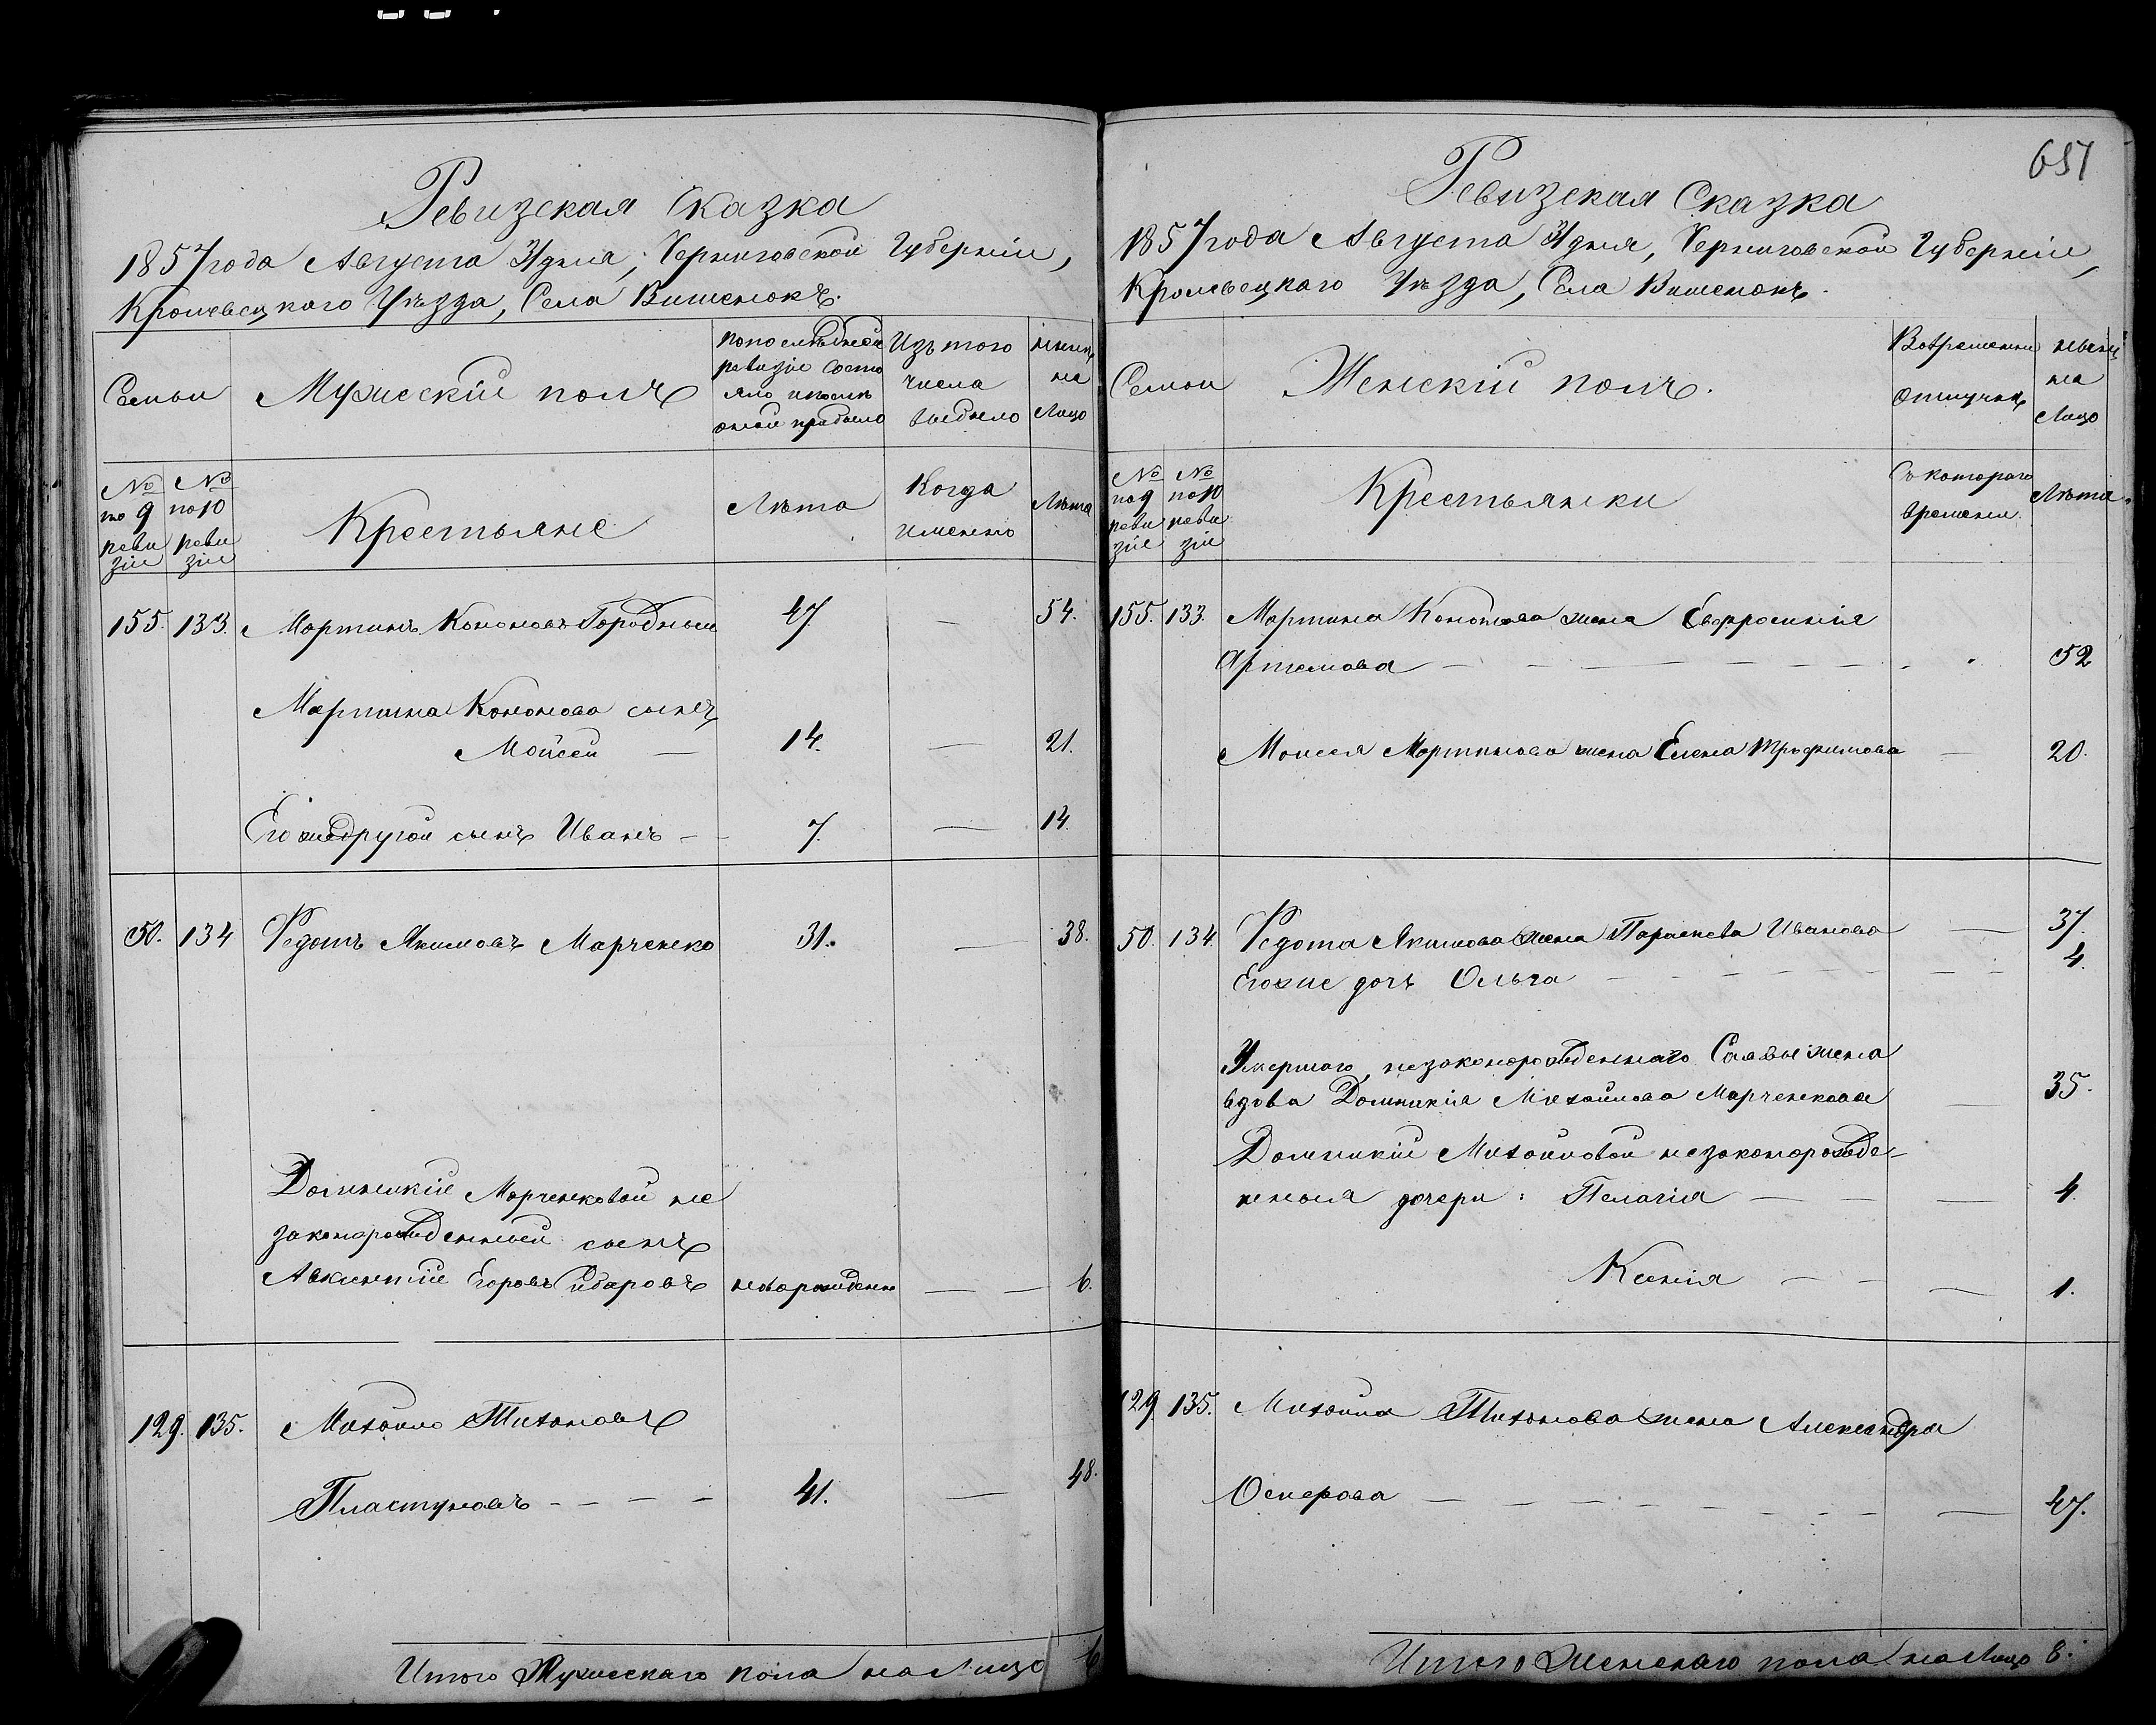 Ревизская Сказка
1857 года Августа 31 дня, Черниговской Губерніи,
Кролевецкаго Уѣзда, Села Вишенокъ.
Семьи
Мужескій полъ
По последней
ревизіи состо
яло и после
оной прибыло
Изъ того
числа
выбыло
ныне
на
Лицо
№
по 9
реви
зіи
№
по 10
реви
зіи
Крестьяне
Лѣта
Когда
именно
Лѣта
155. 133. Мартинъ Кононовъ Городный 47. — 54.
Мартина Кононова сынъ
Мойсей — 14. — 21.
Его же другой сынъ Иванъ — 7. — 14.
50. 134 Федотъ Якимовъ Марченко 31. — 38.
Домникіи Марченковой не
законорожденный сынъ
Авксентій Егоровъ новорожденъ — — 6.
129. 135. Михайло Тихоновъ
Пластуновъ - - - - 41. — 48.
Итого Мужескаго пола на Лицо 6
651
Ревизская Сказка
1857 года Августа 31 дня, Черниговской Губерніи,
Кролевецкаго Уѣзда, Села Вишенокъ.
Семьи
Женскій полъ.
Во временной
отлучке
ныне
на
Лицо
№
по 9
реви
зіи
№
по 10
реви
зіи
Крестьянки
Съ котораго
времени
Лѣта.
155. 133. Мартина Кононова жена Евфросинія
Артемова — — — — — — — 52
Моисея Мартинова жена Елена Трофимова — 20.
50. 134. Федота Якимова жена Параскева Иванова — 37.
Его же дочь Ольга — — — — — — 4.
Умершаго незаконорожденнаго Саввы жена
вдова Домникія Михайлова Марченкова — 35.
Домникіи Михайловой незаконорожде-
нныя дочери: Пелагія — — — 4.
Ксенія — — — 1.
129. 135. Михайла Тихонова жена Александра
Оснерова — — — — — — — 47.
Итого Женскаго пола на Лицо 8.